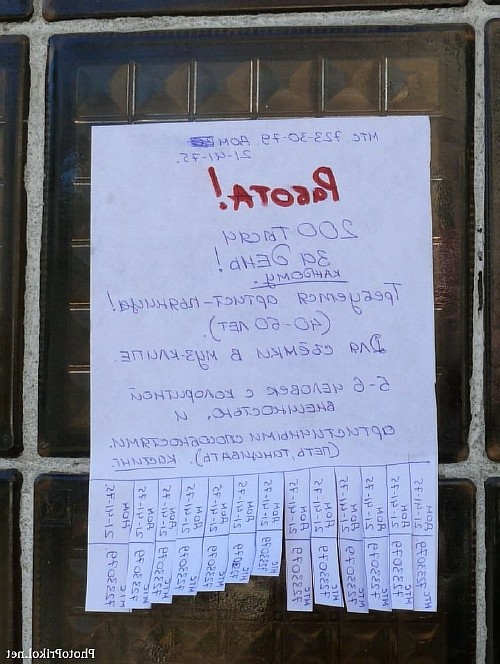 МТС 723-30-79. ДОМ
21-41-75.
РАБОТА!
200 тысяч
за день!
каждому.
Требуется артист-пьяница!
(40-60 лет).
Для съёмки в муз-клипе.
5-6 человек с колоритной
внешностью, и
артистичными способностями.
(петь, танцевать). Костинг.
дом 21-41-75 мтс 7233079
дом 21-41-75 мтс 7233079
дом 21-41-75 мтс 7233079
дом 21-41-75 мтс 7233079
дом 21-41-75 мтс 7233079
дом 21-41-75 мтс 7233079
дом 21-41-75 мтс 7233079
дом 21-41-75 мтс 7233079
дом 21-41-75 мтс 7233079
дом 21-41-75 мтс 7233079
дом 21-41-75 мтс 7233079
дом 21-41-75 мтс 7233079
дом 21-41-75 мтс 7233079
PhotoPrikol.net